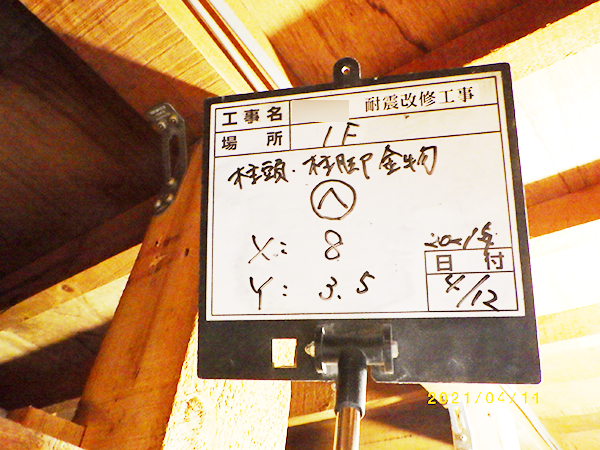 工事名 耐震改修工事
場所 1F
柱頭・柱脚金物
へ
X: 8
Y: 3.5
2021年
日付
4/12
2021/04/11